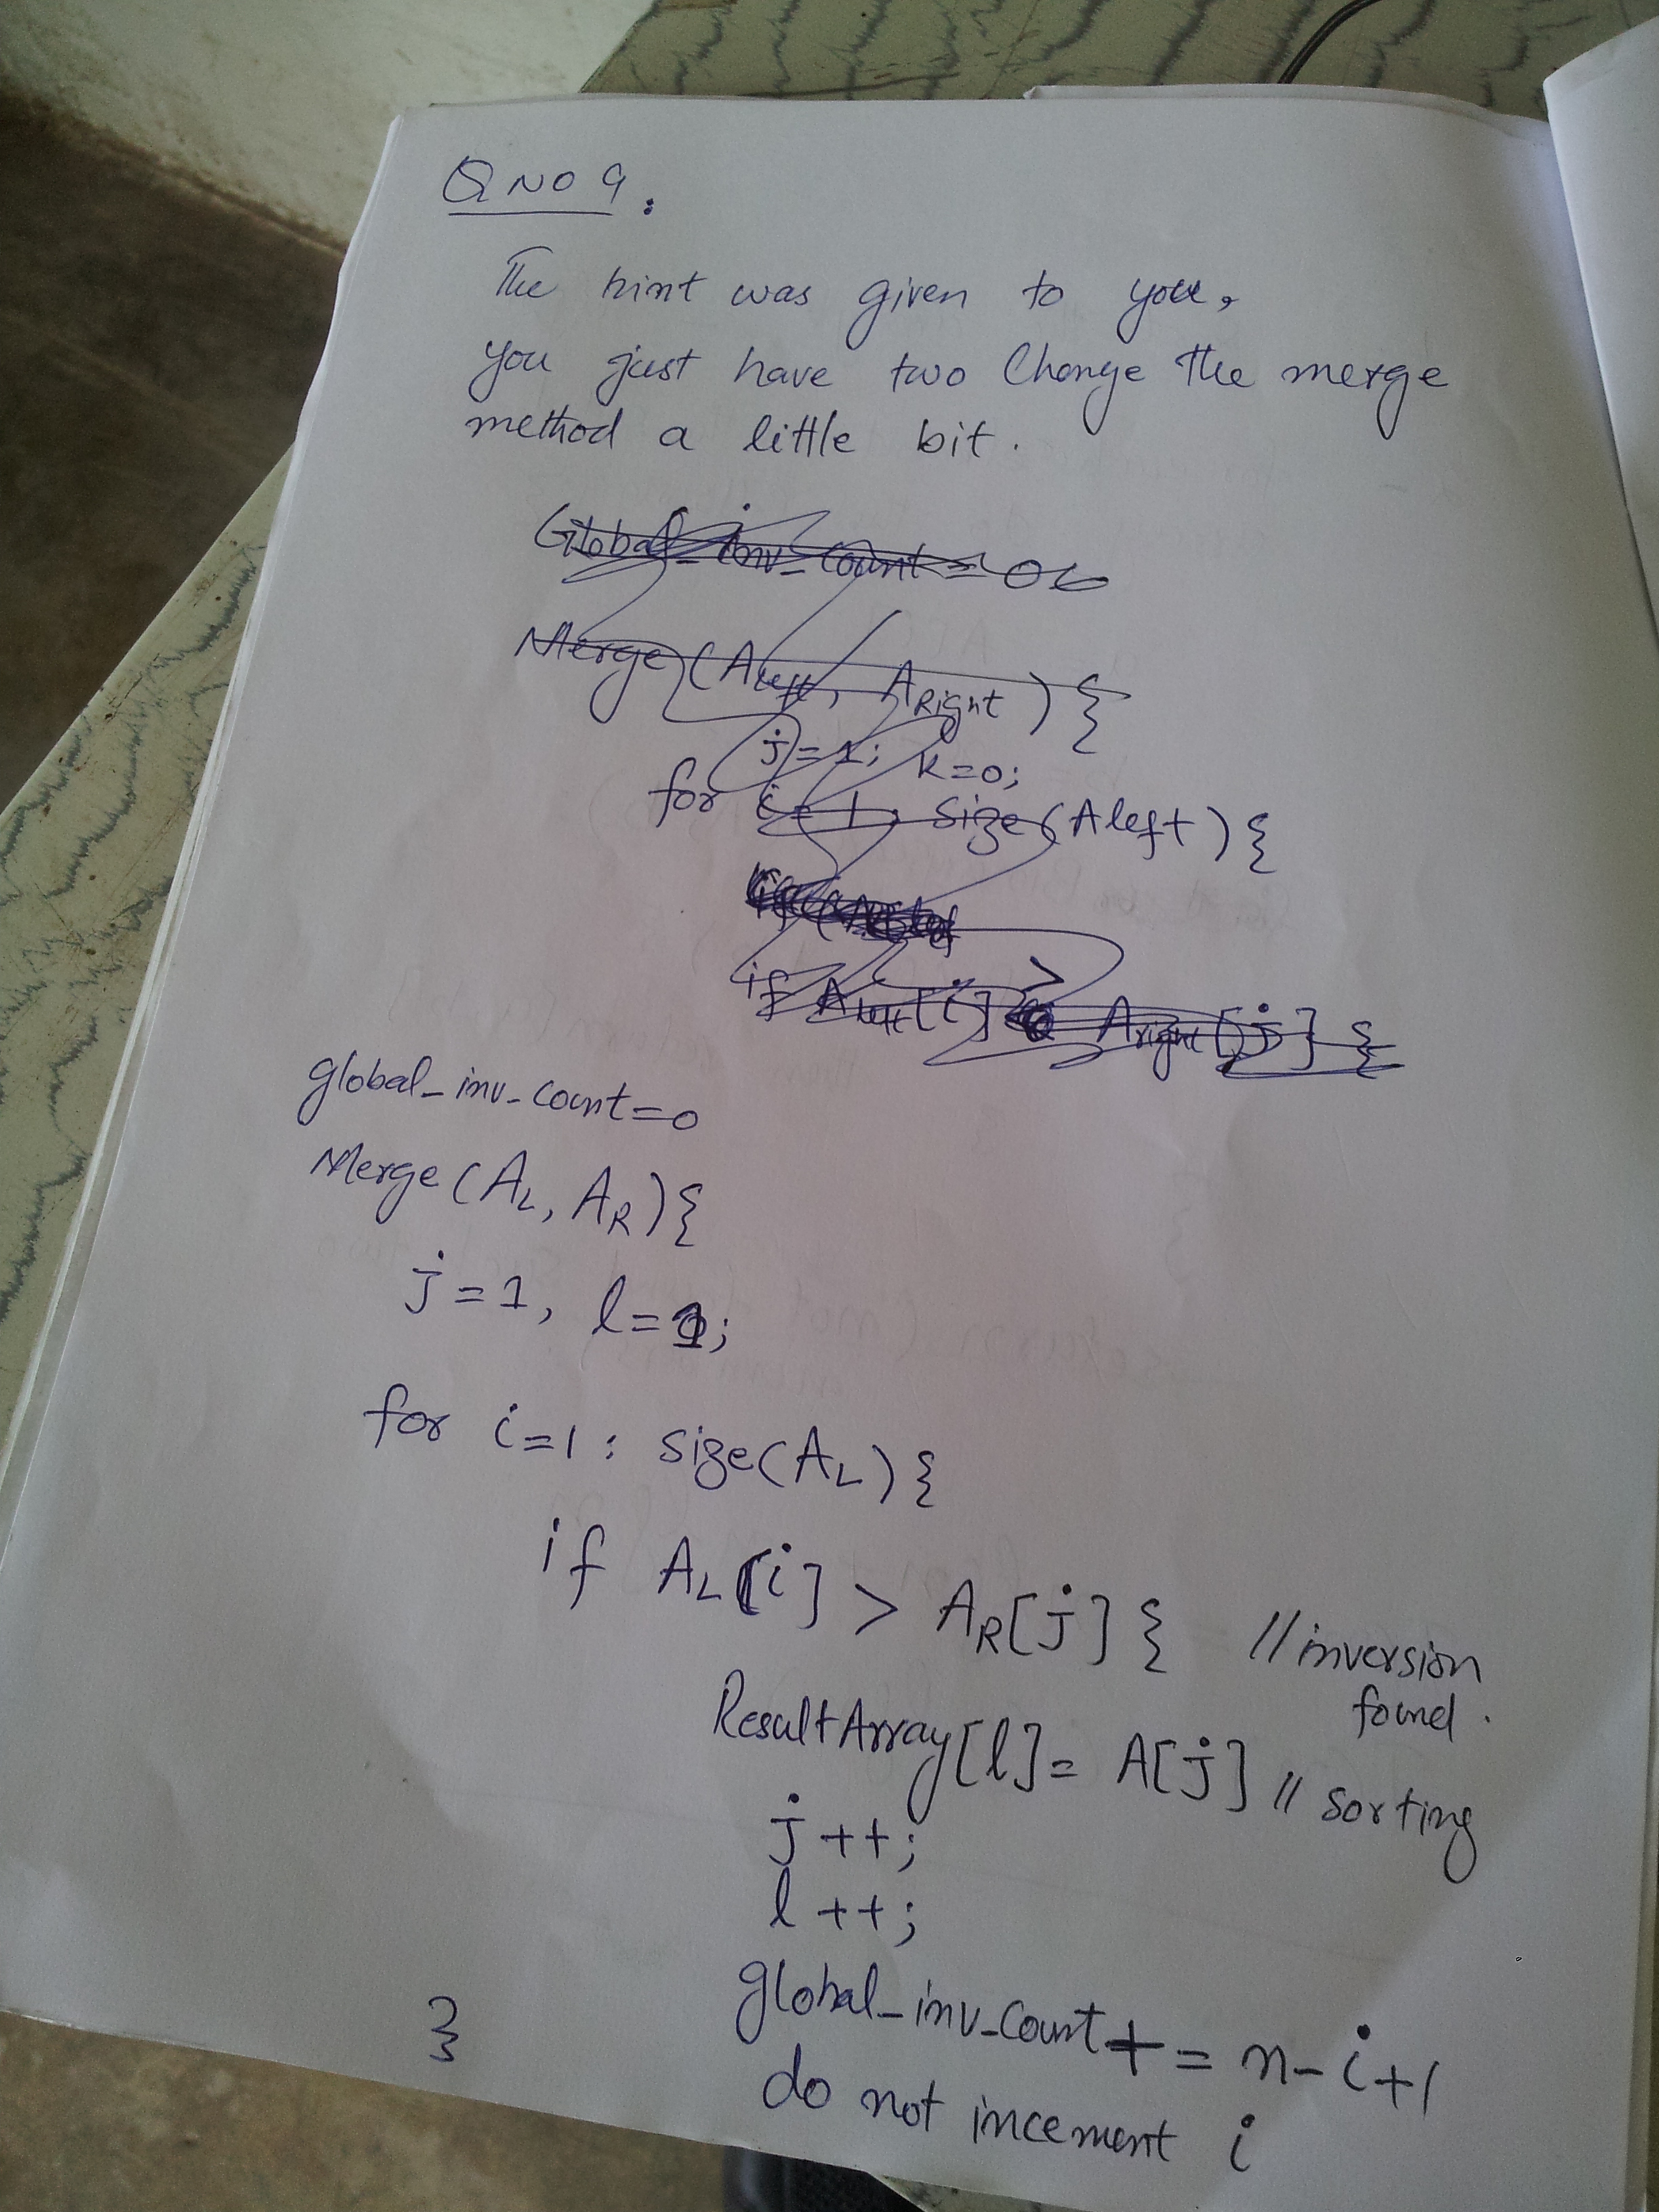 Q no 9:
The hint was given to you,
you just have two Change the merge
method a little bit.
Global_inv_count = 0
Merge (Aleft, ARight) {
for (j=1; k=0;
i = 1 → size (Aleft) {
if Aleft[i] > Aright[j] {
global_inv_count=0
Merge (AL, AR) {
j = 1, l = 1;
for i=1 : size(AL) {
if AL[i] > AR[j] { // inversion
found.
ResultArray[l] = A[j] // sorting
j++;
l++;
global_inv_count += n-i+1
do not incement i
}